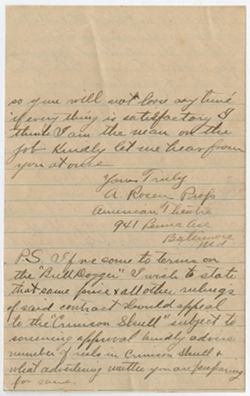 so you will not lose any time
if every thing is satisfactory I
think I am the man on the
job Kindly let me hear from
you at once
Yours Truly
A Rosen Prop
American Theatre
941 Penna Ave
Baltimore
Md
P.S. If we come to terms on
the "Bull Dogger" I wish to state
that same price & all other rulings
of said contract would appeal
to the "Crimson Skull" subject to
screening approval kindly advise
number of reels in Crimson Skull &
what advertising matter you are preparing
for same.